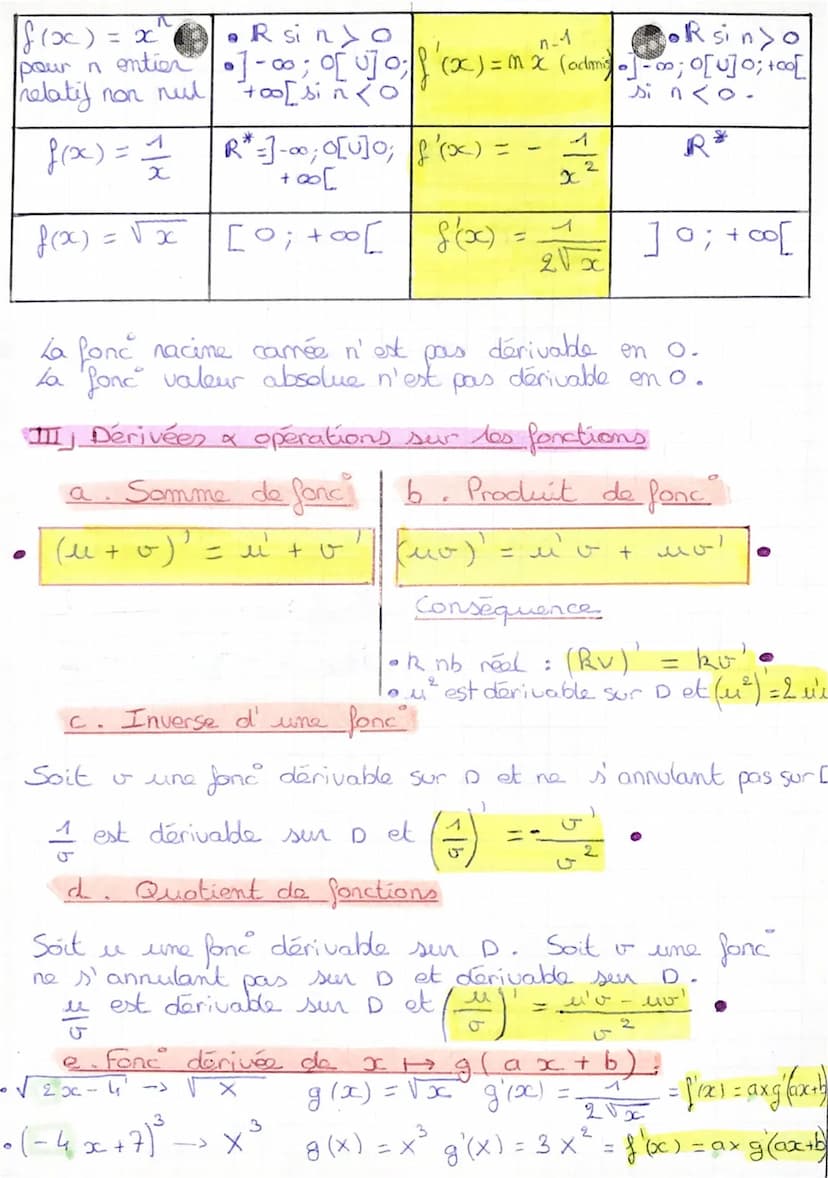 f(x) = xⁿ
pour n entier
relatif non nul
• R si n > 0
• ]-∞ ; 0[ U ]0;
+∞[ si n < 0
f'(x) = n xⁿ⁻¹ (admis)
• R si n > 0
• ]-∞ ; 0[ U ]0 ; +∞[
si n < 0.
f(x) = 1/x
R* = ]-∞ ; 0[ U ]0;
+∞[
f'(x) = - 1/x²
R*
f(x) = √x
[0 ; +∞[
f'(x) = 1/(2√x)
]0 ; +∞[
La fonc° racine carrée n'est pas dérivable en 0.
La fonc° valeur absolue n'est pas dérivable en 0.
III, Dérivées & opérations sur les fonctions
a. Somme de fonc°
b. Produit de fonc°
• (u + v)' = u' + v'
(uv)' = u'v + uv' •
Conséquence
• k nb réel : (kv)' = kv' •
• u² est dérivable sur D et (u²)' = 2 u'u
c. Inverse d'une fonc°
Soit v une fonc° dérivable sur D et ne s'annulant pas sur D
1/v est dérivable sur D et (1/v)' = - v'/v² •
d. Quotient de fonctions
Soit u une fonc° dérivable sur D. Soit v une fonc°
ne s'annulant pas sur D et dérivable sur D.
u/v est dérivable sur D et (u/v)' = (u'v - uv')/v² •
e. Fonc° dérivée de x ↦ g(ax + b) :
• √(2x - 4) → √X g(x) = √x g'(x) = 1/(2√x) = f'(x) = a×g'(ax+b)
• (-4x + 7)³ → X³ g(x) = x³ g'(x) = 3x² = f'(x) = a× g'(ax+b)